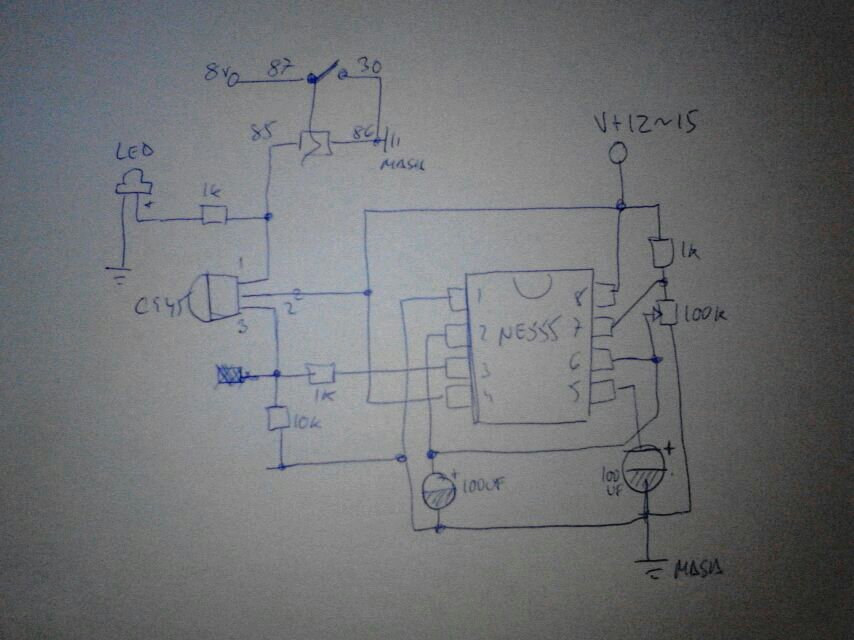 8v 87 30
85 86
MASA
LED
V+12~15
1K
1k
1
2
2
3
C945
1 8
2 NE555 7
3 6
4 5
100k
1K
10k
100UF
100
UF
MASA